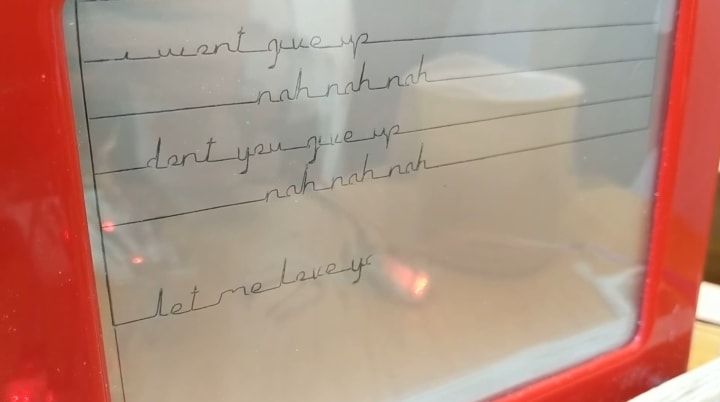 i wont give up
nah nah nah
dont you give up
nah nah nah
let me love yo